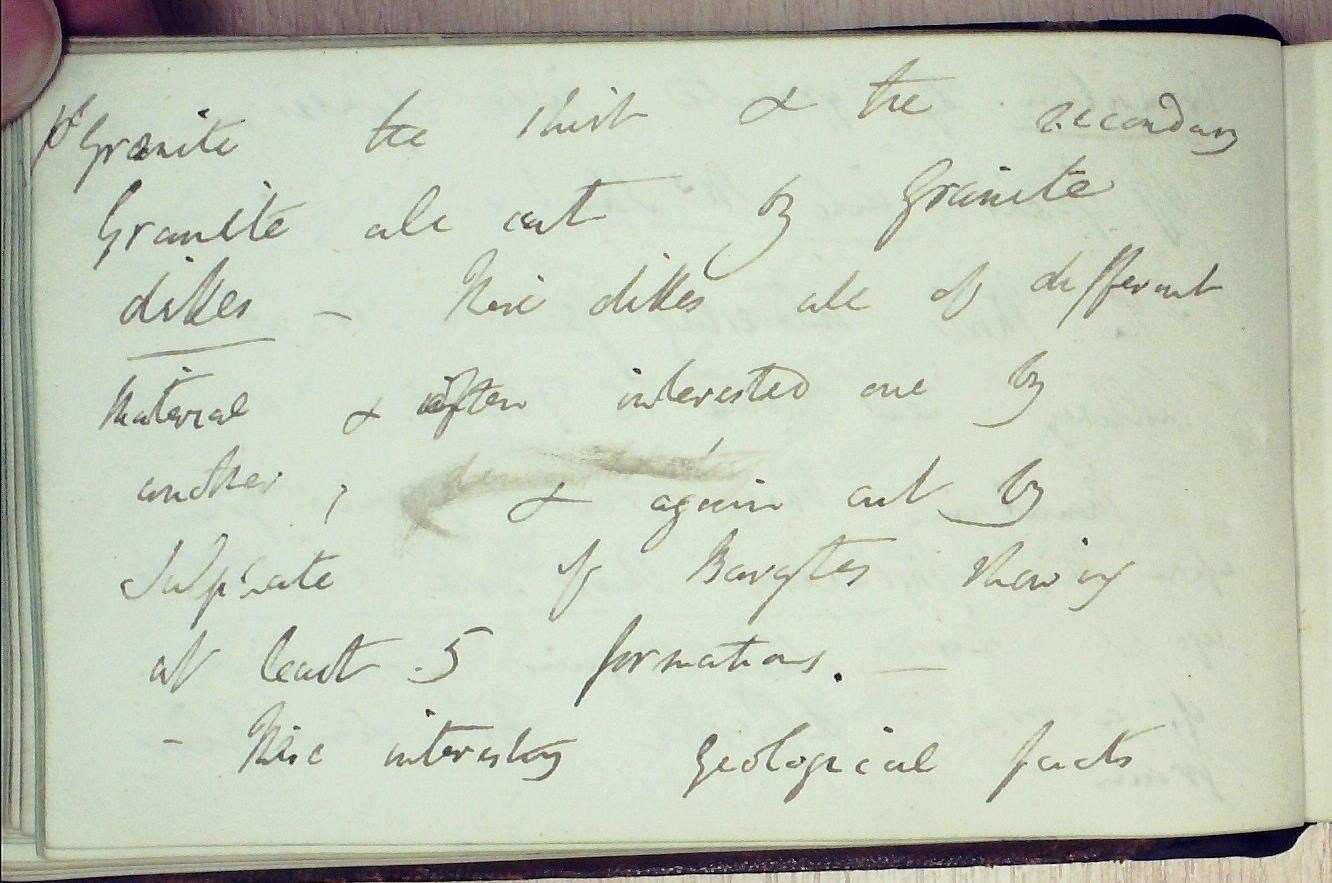 Granite the shist & the secondary
Granite are cut by Granite
dikes – These dikes are of different
material & often intersected one by
another; & again cut by
Sulphate of Barytes shewing
at least 5 formations. –
– These interesting geological facts